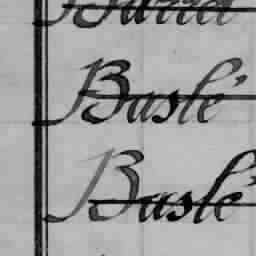 Baslé
Baslé